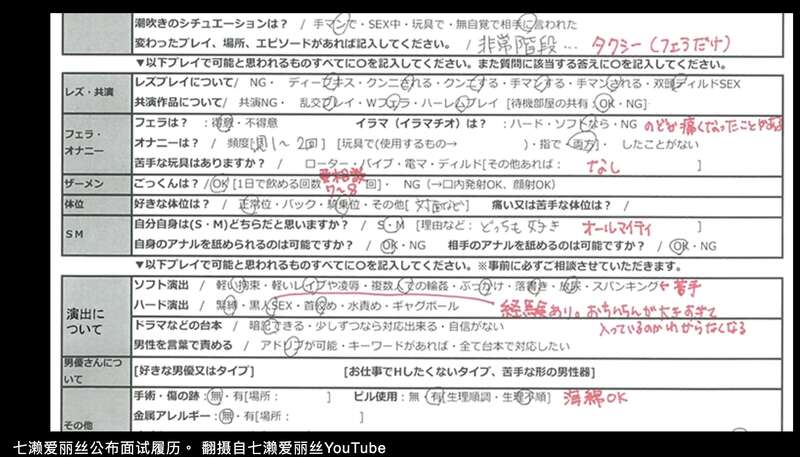 潮吹きのシチュエーションは？ / 手マンで・SEX中・玩具で・無自覚で相手に言われた
変わったプレイ、場所、エピソードがあれば記入してください。 / 非常階段… タクシー（フェラだけ）
▼以下プレイで可能と思われるものすべてに○を記入してください。また質問に該当する答えに○を記入してください。
レズ・共演
レズプレイについて/ NG・ ディープキス・クンニされる・クンニする・手マンする・手マンされる・双頭ディルドSEX
共演作品について/ 共演NG・ 乱交プレイ・Wフェラ・ハーレムプレイ [待機部屋の共有：OK・NG]
フェラ・オナニー
フェラは？ ：得意・不得意 イラマ（イラマチオ）は？ ：ハード・ソフトなら・NG のどが痛くなったことがある
オナニーは？ / 頻度[週1～2回] [玩具で(使用するもの→ )・指で・両方]・ したことがない
苦手な玩具はありますか？ / ローター・バイブ・電マ・ディルド[その他あれば： なし ]
ザーメン
ごっくんは？ /OK [1日で飲める回数 要相談 7～8 回]・ NG（→口内発射OK、顔射OK）
体位
好きな体位は？ /正常位・バック・騎乗位・その他[ 対面など ] 痛い又は苦手な体位は？ /
ＳＭ
自分自身は(S・M)どちらだと思いますか？ / S・M [理由など：どっちも好き オールマイティ ]
自身のアナルを舐められるのは可能ですか？ / OK・NG 相手のアナルを舐めるのは可能ですか？ / OK・NG
▼以下プレイで可能と思われるものすべてに○を記入してください。※事前に必ずご相談させていただきます。
演出について
ソフト演出 / 軽い拘束・軽いレイプや凌辱・複数人での輪姦・ぶっかけ・落書き・放尿・スパンキング←苦手
ハード演出 / 緊縛・黒人SEX・首絞め・水責め・ギャグボール 経験あり。おちんちんが大きすぎて
入っているのかわからなくなる
ドラマなどの台本 / 暗記できる・少しずつなら対応出来る・自信がない
男性を言葉で責める / アドリブが可能・キーワードがあれば・全て台本で対応したい
男優さんについて
[好きな男優又はタイプ] [お仕事でHしたくないタイプ、苦手な形の男性器]
その他
手術・傷の跡：無・有[場所： ] ピル使用：無・有[生理順調・生理不順] 海綿OK
金属アレルギー：無・有[場所： ]
七濑爱丽丝公布面试履历。 翻摄自七濑爱丽丝YouTube